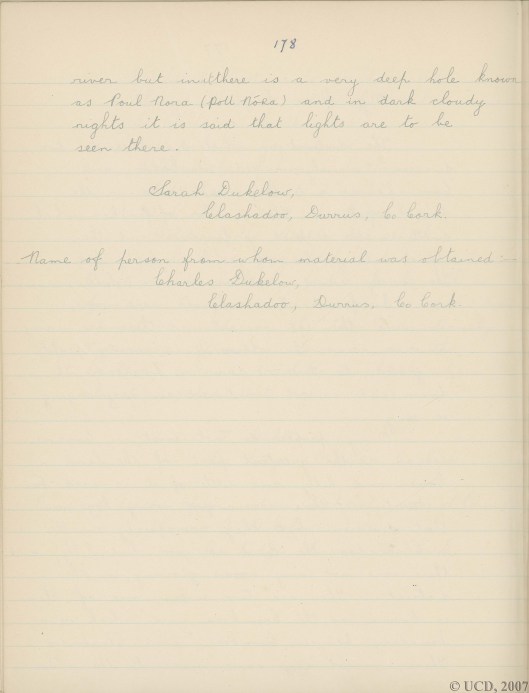 178
river but in it there is a very deep hole known
as Poul Nora (Poll Nóra) and in dark cloudy
nights it is said that lights are to be
seen there.
Sarah Dukelow,
Clashadoo, Durrus, Co Cork.
Name of person from whom material was obtained:-
Charles Dukelow,
Clashadoo, Durrus, Co Cork
© UCD, 2007